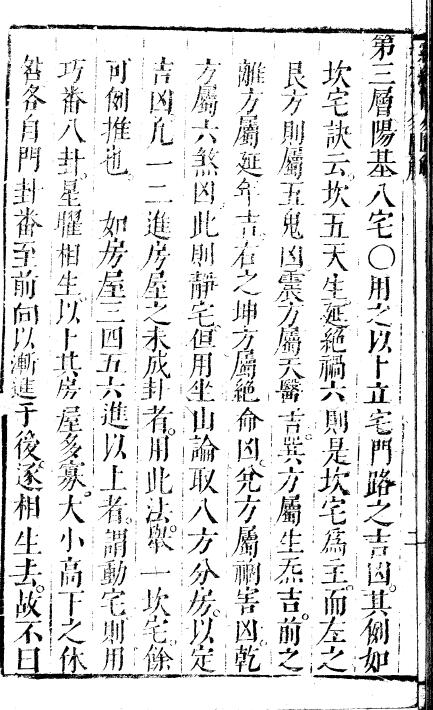 第三層陽基八宅〇用之以卜立宅門路之吉凶其例如
坎宅訣云坎五天生延絕禍六則是坎宅爲主而左之
艮方則屬五鬼凶震方屬天醫吉巽方屬生炁吉前之
離方屬延年吉右之坤方屬絕命凶兌方屬禍害凶乾
方屬六煞凶此則靜宅但用坐山論取八方分房以定
吉凶凢一二進房屋之未成卦者用此法舉一坎宅餘
可例推也　如房屋三四五六進以上者謂動宅則用
巧番八卦星曜相生以卜其房屋多寡大小高下之休
咎各自門卦番至前向以漸進于後逐相生去故不曰